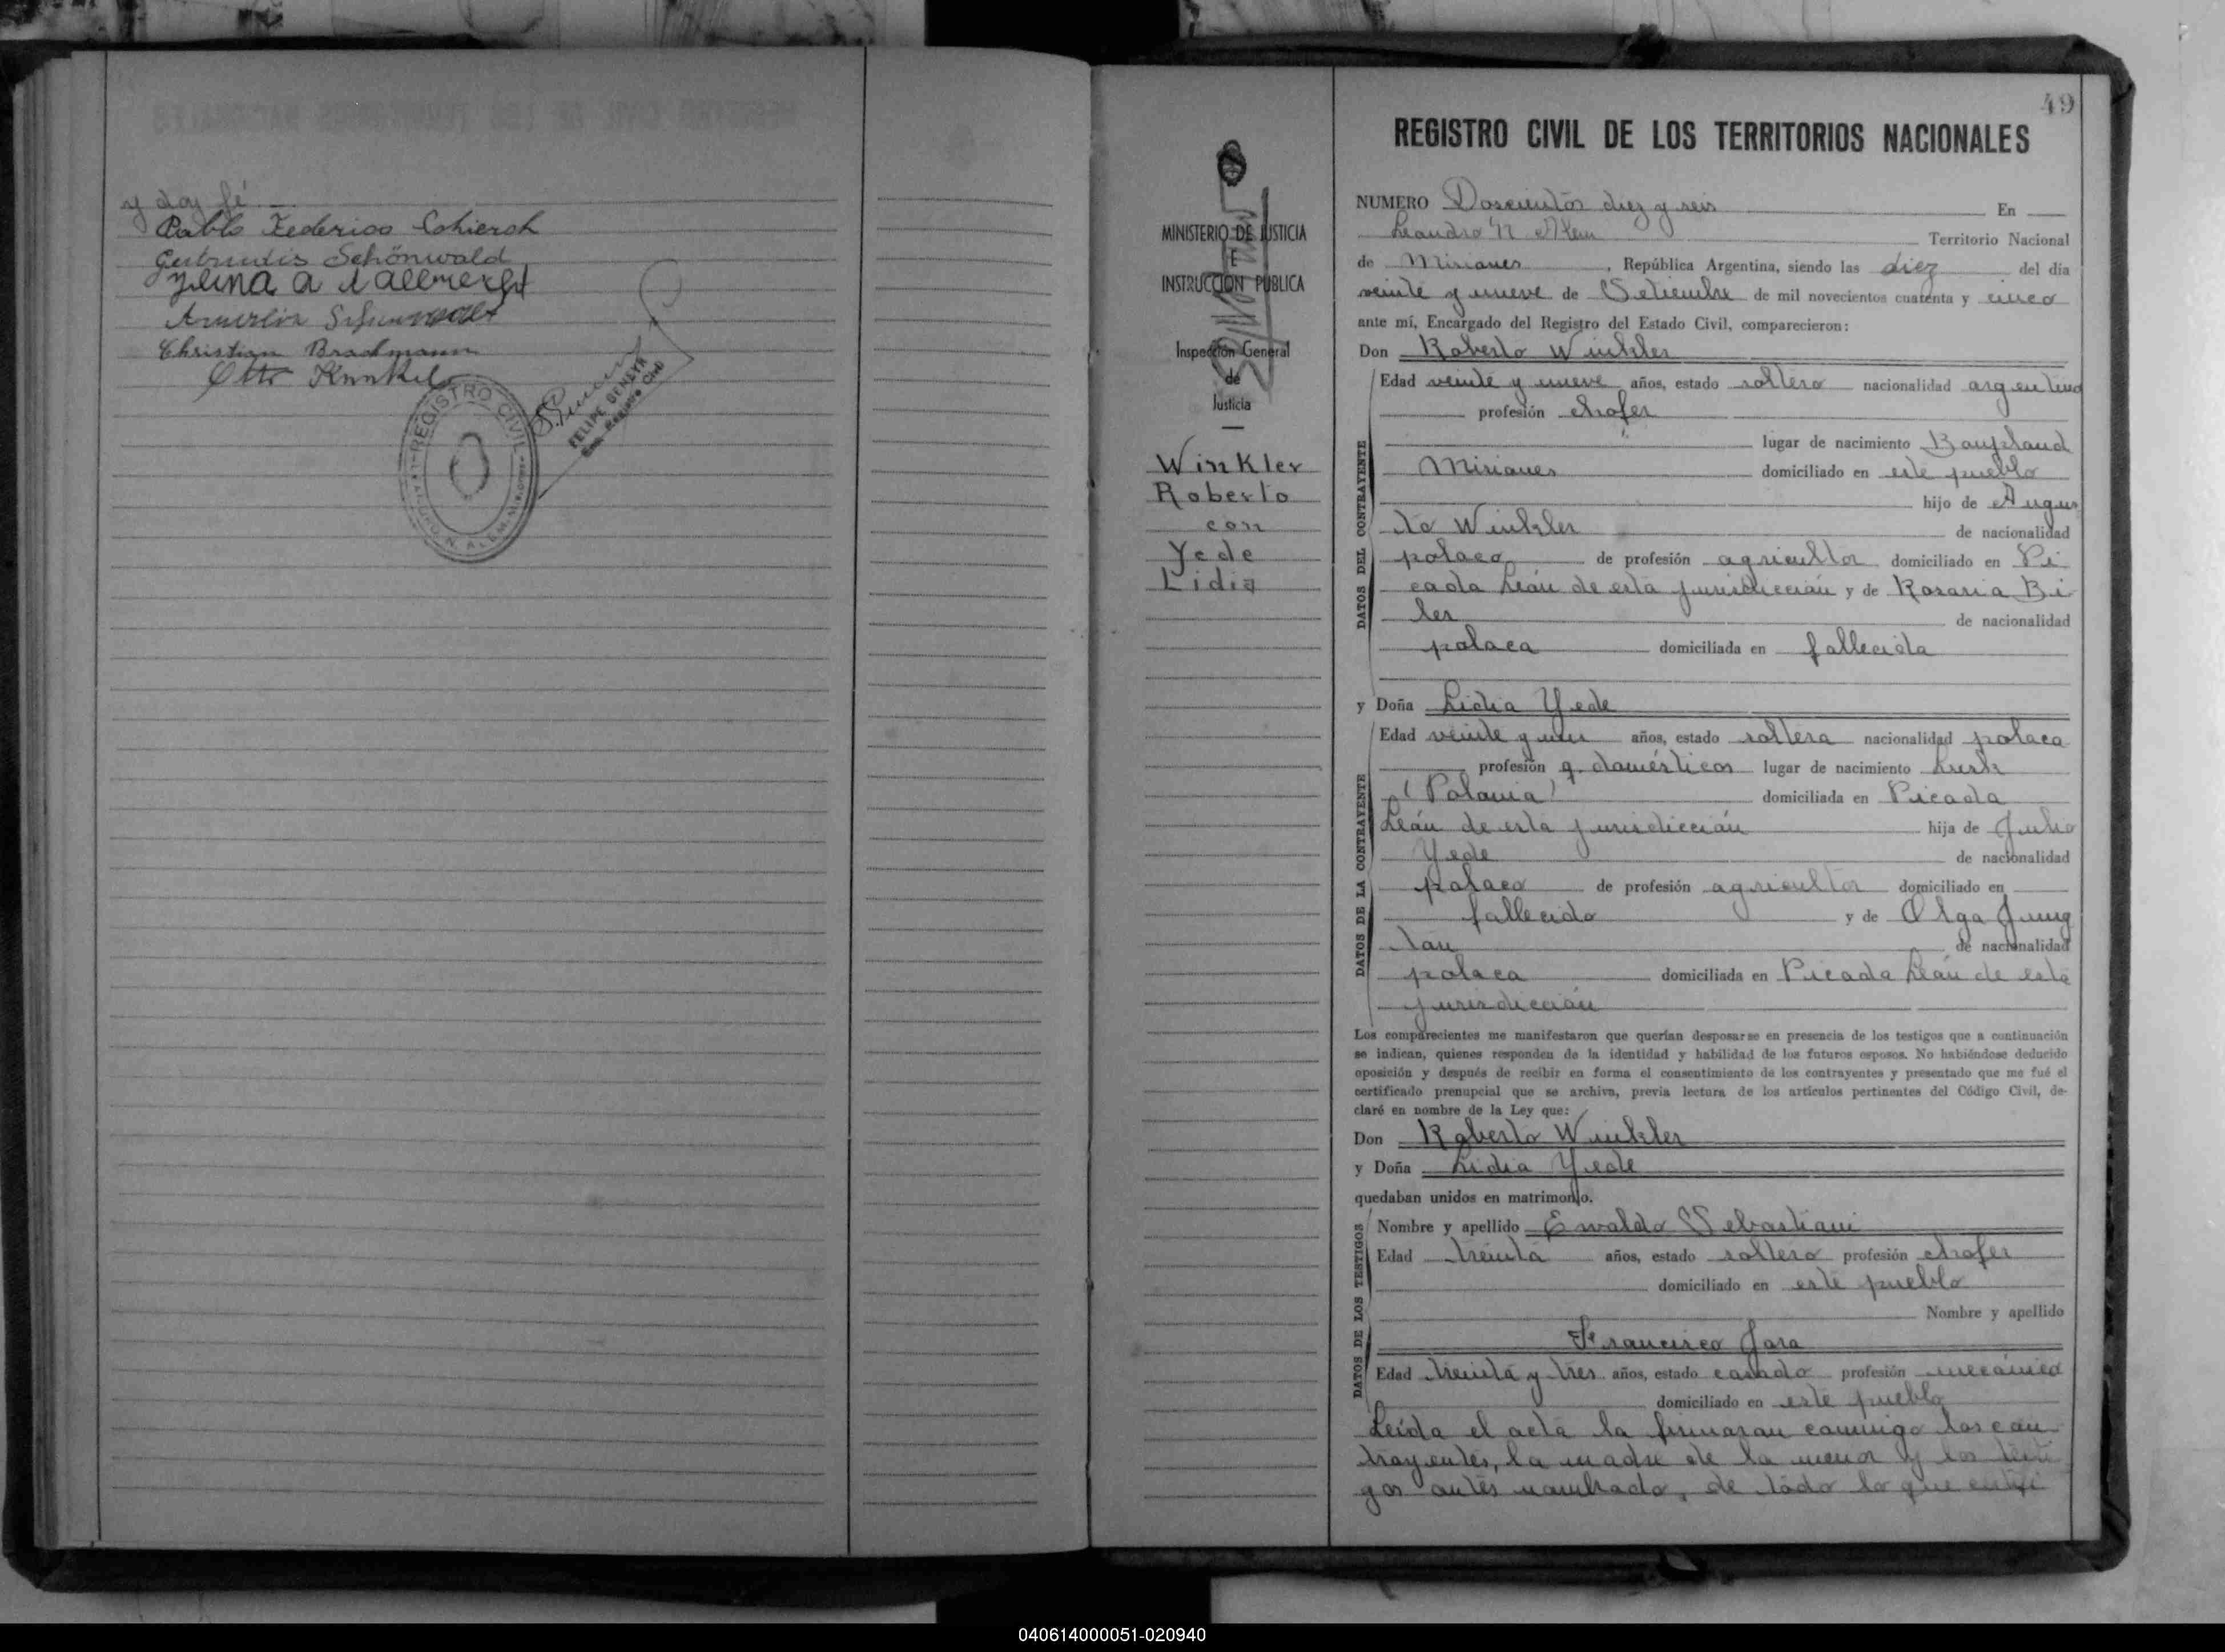 y doy fé
Pablo Federico Schieroh
Gertrudis Schönwald
Christian Brachmann
Otto Kunkel
REGISTRO CIVIL
LEANDRO N. ALEM. Misiones
FELIPE GENEYR
Enc. Registro Civil
MINISTERIO DE JUSTICIA
E
INSTRUCCION PUBLICA
Inspección General
de
Justicia
Winkler
Roberto
con
Yede
Lidia
49
REGISTRO CIVIL DE LOS TERRITORIOS NACIONALES
NUMERO Doscientos diez y seis En
Leandro N Alem Territorio Nacional
de Misiones, República Argentina, siendo las diez del día
veinte y nueve de Setiembre de mil novecientos cuarenta y cinco
ante mí, Encargado del Registro del Estado Civil, comparecieron:
Don Roberto Winkler
DATOS DEL CONTRAYENTE
Edad veinte y nueve años, estado soltero nacionalidad argentino
profesión chofer
lugar de nacimiento Baupland
Misiones domiciliado en este pueblo
hijo de Augus
to Winkler de nacionalidad
polaco de profesión agricultor domiciliado en Pi
cada León de esta jurisdicción y de Rosaria Bi
ler de nacionalidad
polaca domiciliada en fallecida
y Doña Lidia Yede
DATOS DE LA CONTRAYENTE
Edad veinte y un años, estado soltera nacionalidad polaca
profesión q. domésticos lugar de nacimiento Lusk
(Polonia) domiciliada en Picada
León de esta jurisdicción hija de Julio
Yede de nacionalidad
polaco de profesión agricultor domiciliado en
fallecido y de Olga Jung
tau de nacionalidad
polaca domiciliada en Picada León de esta
jurisdicción
Los comparecientes me manifestaron que querían desposarse en presencia de los testigos que a continuación
se indican, quienes responden de la identidad y habilidad de los futuros esposos. No habiéndose deducido
oposición y después de recibir en forma el consentimiento de los contrayentes y presentado que me fué el
certificado prenupcial que se archiva, previa lectura de los artículos pertinentes del Código Civil, de-
claré en nombre de la Ley que:
Don Roberto Winkler
y Doña Lidia Yede
quedaban unidos en matrimonio.
DATOS DE LOS TESTIGOS
Nombre y apellido Ewaldo Sebastiani
Edad treinta años, estado soltero profesión chofer
domiciliado en este pueblo
Nombre y apellido
Francisco Jara
Edad treinta y tres años, estado casado profesión mecánico
domiciliado en este pueblo
Leída el acta la firmaron conmigo los con
trayentes, la madre de la menor y los testi
gos antes nombrado, de todo lo que certifi
040614000051-020940